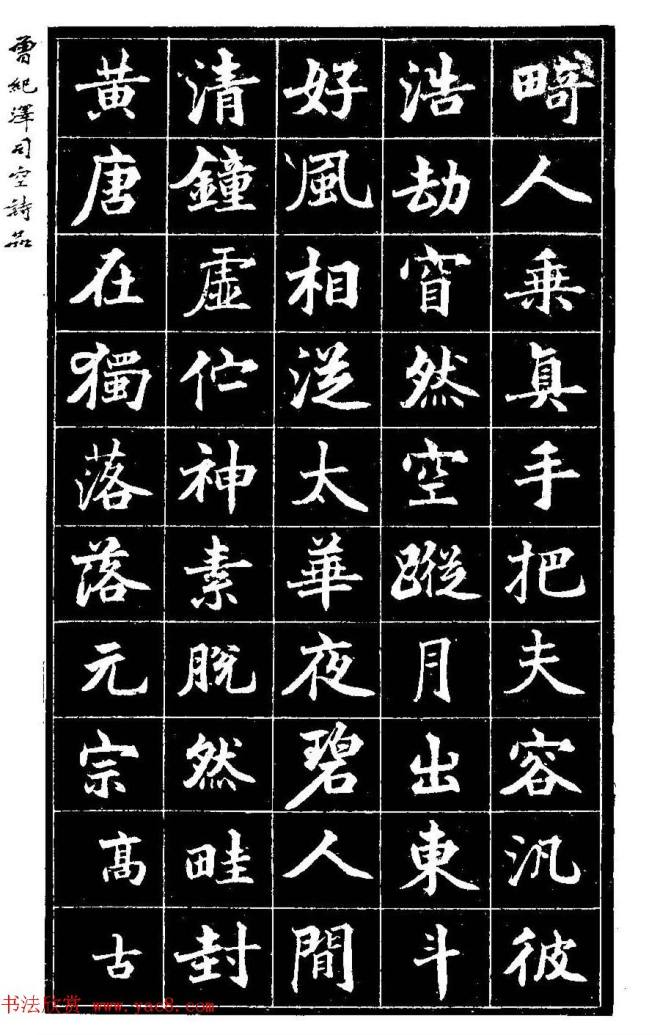 畸人乗真手把夫容汎彼
浩劫窅然空蹤月出東斗
好風相從太華夜碧人間
清鐘虛佇神素脫然畦封
黃唐在獨落落元宗髙古
曾紀澤司空詩品
书法欣赏 www.yac8.com